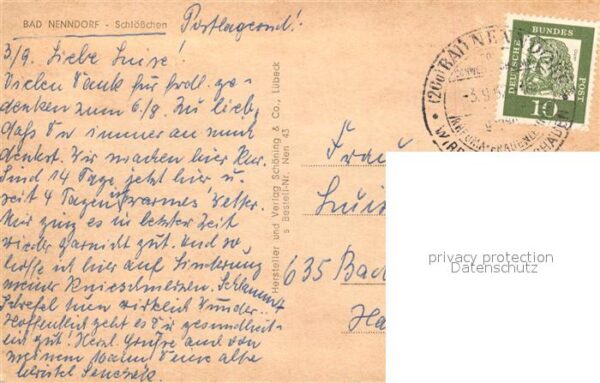 BAD NENNDORF - Schlößchen
Postlagernd!
3/9. Liebe Luise!
Vielen Dank für frdl. ge-
denken zum 6/8. Zu lieb,
daß Du immer an mich
denkst. Wir machen hier Kur.
Sind 14 Tage jetzt hier u.
seit 4 Tagen warmes Wetter.
Mir ging es in letzter Zeit
wieder garnicht gut. Und so
hoffe ich hier auf Linderung
meiner Knieschmerzen. Schlamm +
Schwefel tun wirklich Wunder..!
Hoffentlich geht es Dir gesundheit-
lich gut! Herzl. Grüße auch von
meinem Mann Deine alte
Christel
Hersteller und Verlag Schöning & Co., Lübeck
s Bestell-Nr. Nen 43
(20a) BAD NENNDORF
-3.9.6
DEUTSCHE BUNDES POST
10
Frau
Luis
635 Bad
Ha
privacy protection
Datenschutz